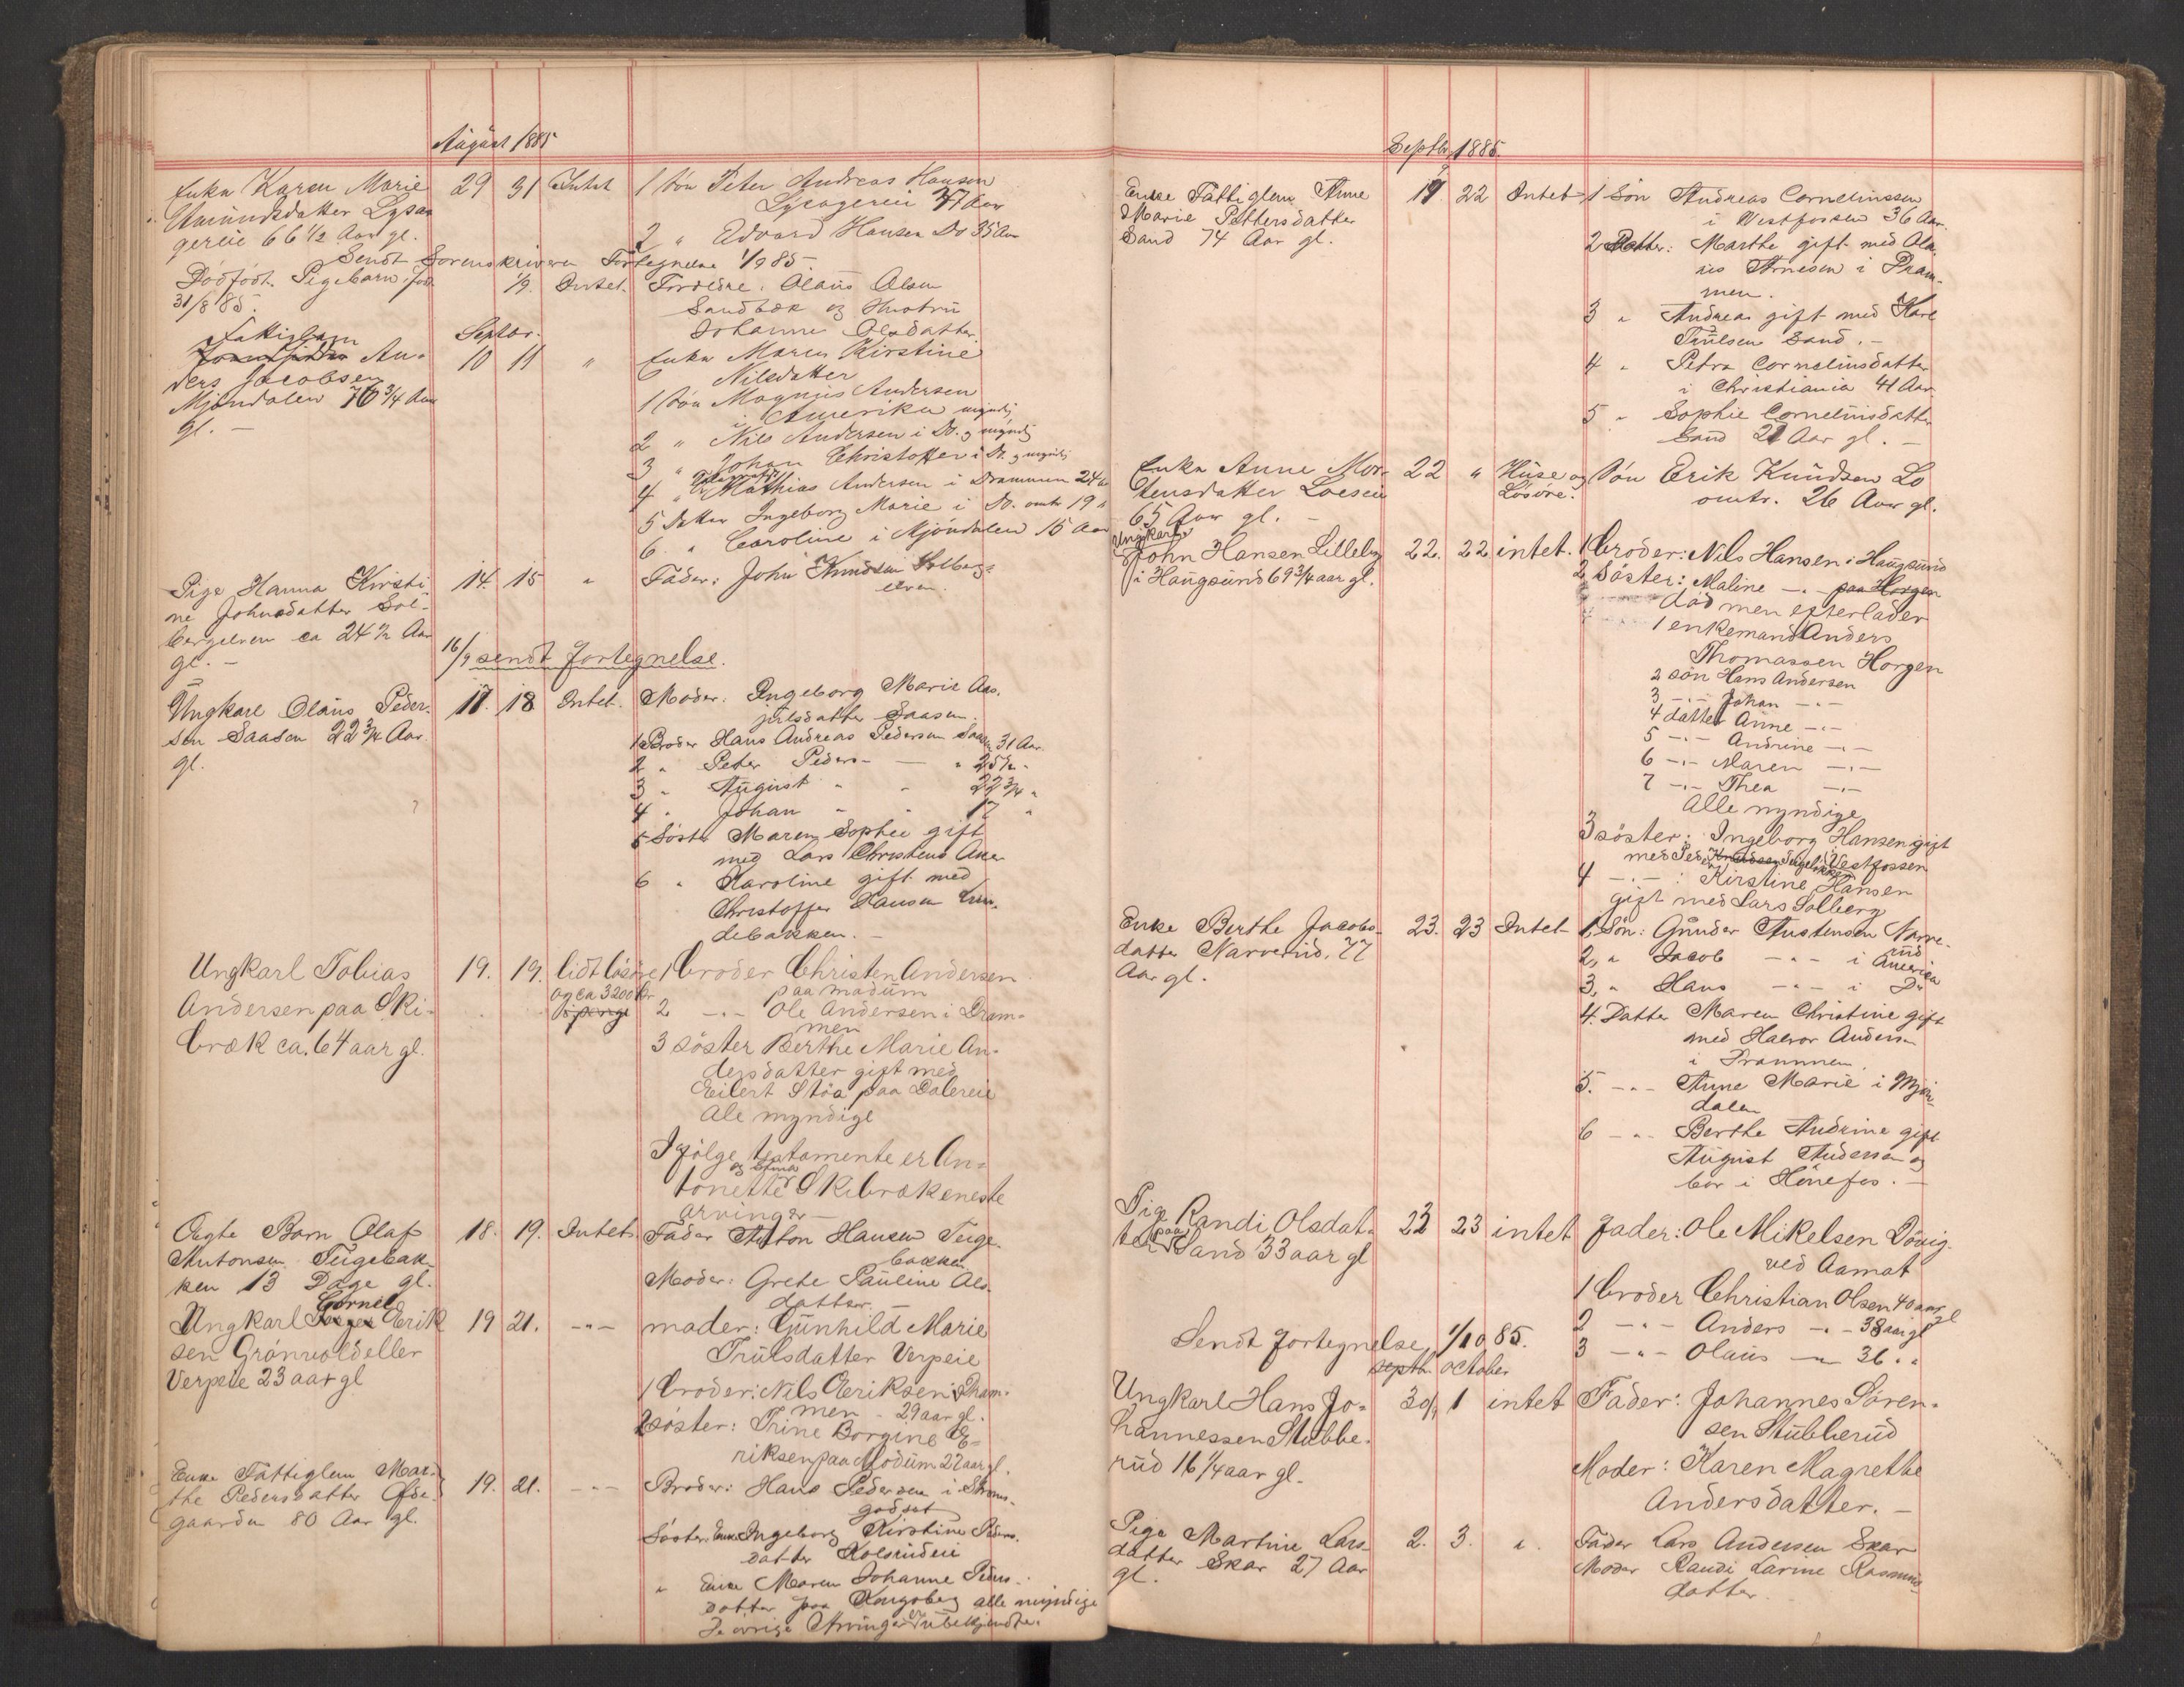 August 1885
Enke Karen Marie 29 31 Intet 1 Søn Peter Andreas Hansen
Amundsdatter Lysa- Lysageren 37 Aar
gereie 66 1/2 Aar gl. 2 " Edvard Hansen Do 35 Aar
Sendt Sorenskriveren Fortegnelse 1/9 85
Dødfødt Pigebarn, født 1/9. Intet. Foreldre: Olaus Olsen
31/8 85. Sandbæk og Hustru
Johanne Olsdatter.
Fattiglem Septbr.
Anders Jacobsen 10 11 " Enke Maren Kirstine
Mjøndalen 76 3/4 Aar Nilsdatter
gl. – 1 Søn Magnus Andersen
i Amerika myndig
2 " Nils Andersen i Do. og myndig
3 " Johan Christoffer i Do. og myndig
4 " Mathias Andersen i Drammen 24 Aar
5 Datter Ingeborg Marie i Do. omtr 19 "
6. " Caroline i Mjøndalen 15 Aar
Pige Hanna Kirsti- 14. 15 " Fader: John Knudsen Solbergs-
ne Johnsdatter Sol- elven.
bergelven ca 24 1/2 Aar
gl. –
16/9 sendt fortegnelse.
Ungkarl Olaus Peder- 17. 18 Intet. Moder: Ingeborg Marie As-
sen Saasen 22 3/4 Aar julsdatter Saasen.
gl. 1 Broder Hans Andreas Pedersen Saasen 31 Aar.
2 " Peter Peders- — " 25 1/2 "
3 " August " " 22 3/4 "
4 " Johan " " 17 "
5 Søster Maren Sophie gift
med Lars Christens Aker
6 " Karoline gift med
Christoffer Hansen Lun-
debakken. –
Ungkarl Tobias 19. 19. lidt løsøre 1 broder Christen Andersen
og ca 3200 kr paa modum
Andersen paa Ski- i penge 2 -"- Ole Andersen i Dram-
bræk ca. 64 aar gl. men
3 søster Berthe Marie An-
dersdatter gift med
Eilert Støa paa Dalereie
ale myndige
Ifølge testamente er An-
tonette Skibræk eneste
arvinger —
Ægte Barn Olaf 18. 19. Intet. Fader Anton Hansen Teige-
Antonsen Teigebak- bakken.
ken 13 Dage gl. Moder: Grete Pauline Ols-
datter. –
Cornel
Ungkarl Erik 19 21. -"- moder: Gunhild Marie
sen Grønvold eller Trulsdatter Verpeie
Verpeie 23 aar gl 1 broder: Nils Eriksen i Dram-
men - 29 aar gl.
2 søster: Trine Borgine E-
riksen paa Modum 27 aar gl.
Enke Fattiglem Mar- 19. 21. -"- Broder: Hans Pedersen i Strøms-
the Pedersdatter Øde- godset
gaarden 80 Aar gl. Søster: Enke Ingeborg Kirstine Peders-
datter Kolsrudeie
" Enke Maren Johanne Peders-
datter paa Kongsberg alle myndige
De øvrige Arvinger er ubekjendte.
Septbr 1885.
Enke Fattiglem Anne 19 22 Intet 1 Søn Andreas Corneliussen
Marie Pettersdatter i Vestfossen 36 Aar.
Sand 74 Aar gl. 2 Datter: Marthe gift med Ola-
us Arnesen i Dram-
men.
3 " Andrea gift med Karl
Trulsen Sand. –
4 " Petra Corneliusdatter
i Christiania 41 Aar
5 " Sophie Corneliusdatter
Sand 21 Aar gl. –
Enke Anne Mor- 22 " Huse og Søn Erik Knudsen Lo
tensdatter Loeseie Løsøre. omtr. 26 Aar gl.
65 Aar gl. –
Ungkarl
John Hansen Lilleby 22. 22 intet. 1 broder: Nils Hansen i Haugsund
i Haugsund 69 3/4 aar gl. 2 søster: Maline -"- paa Horgen
død men efterlader
1 enkemand Anders
Thomassen Horgen
2 søn Hans Andersen
3 -"- Johan -"-
4 datter Anne -"-
5 -"- Andrine -"-
6 -"- Maren -"-
7 -"- Thea -"-
Alle myndige
3 søster: Ingeborg Hansen gift
med Peder Vestfossen
4 -"- : Kirstine Hansen
gift med Lars Solberg
Enke Berthe Jacobs- 23. 23 Intet 1, Søn: Gunder Austensen Narve-
datter Narverud, 77 rud
Aar gl. 2, " Jacob -"- i America
3, " Hans -"- i Do
4. Datter Maren Christine gift
med Halvor Andersen
i Drammen.
5. -"- Anne Marie i Mjøn-
dalen
6 -"- Berthe Andrine gift
August Andersen og
bor i Hønefos. –
Pige Randi Olsdat- 22 23 intet Fader: Ole Mikelsen Døvig
ter paa Sand 33 aar gl ved Aamot
1 broder Christian Olsen 40 aar gl
2 -"- Anders -"- 38 aar gl
Sendt fortegnelse 1/10 85. 3 -"- Olaus -"- 36 " "
septbr october
Ungkarl Hans Jo- 30/9 1 intet Fader: Johannes Søren-
hannessen Stubbe- sen Stubberud
rud 16 1/4 aar gl. Moder: Karen Magrethe
Andersdatter. –
Pige Martine Lars- 2. 3. " Fader Lars Andersen Skar
datter Skar 27 Aar Moder Randi Karine Rasmus-
gl. datter.